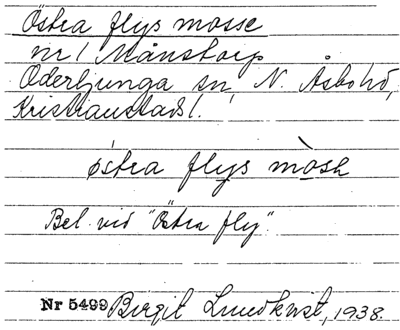 Östra flys mosse
nr 1 Månstorp
Oderljunga sn, N. Åsbo hd,
Kristianstads l.
östra flys mòsa
Bel. vid "Östra fly".
Nr 5499 Birgit Lundkvist, 1938.